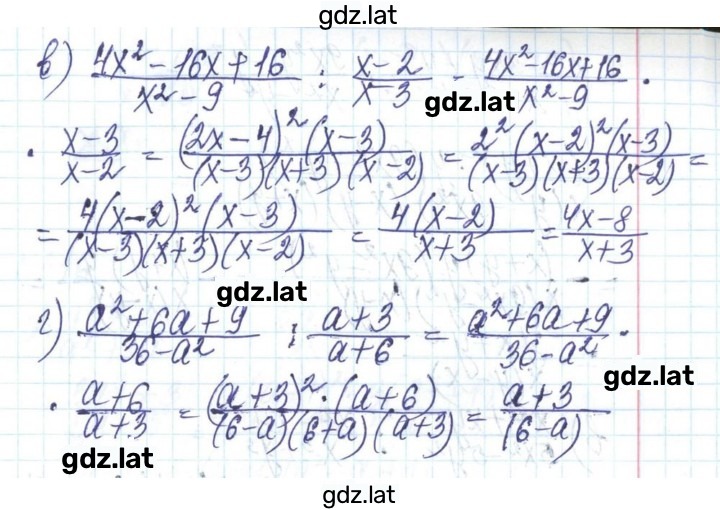 gdz.lat
в) (4x² - 16x + 16)/(x² - 9) : (x - 2)/(x - 3) = (4x² - 16x + 16)/(x² - 9) ·
gdz.lat
· (x - 3)/(x - 2) = ((2x - 4)² (x - 3))/((x - 3)(x + 3)(x - 2)) = (2² (x - 2)² (x - 3))/((x - 3)(x + 3)(x - 2)) =
= (4(x - 2)² (x - 3))/((x - 3)(x + 3)(x - 2)) = (4(x - 2))/(x + 3) = (4x - 8)/(x + 3)
gdz.lat
г) (a² + 6a + 9)/(36 - a²) : (a + 3)/(a + 6) = (a² + 6a + 9)/(36 - a²) ·
gdz.lat
· (a + 6)/(a + 3) = ((a + 3)² · (a + 6))/((6 - a)(6 + a)(a + 3)) = (a + 3)/(6 - a)
gdz.lat
gdz.lat